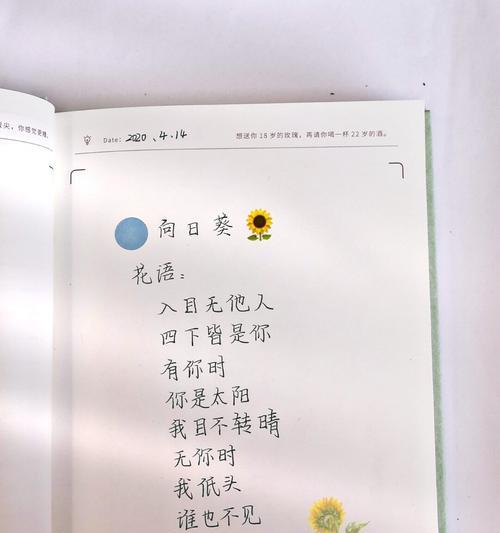 尖，你感觉更糟。
Date: 2020.4.14
想送你18岁的玫瑰，再请你喝一杯22岁的酒。
向日葵
花语：
入目无他人
四下皆是你
有你时
你是太阳
我目不转晴
无你时
我低头
谁也不见